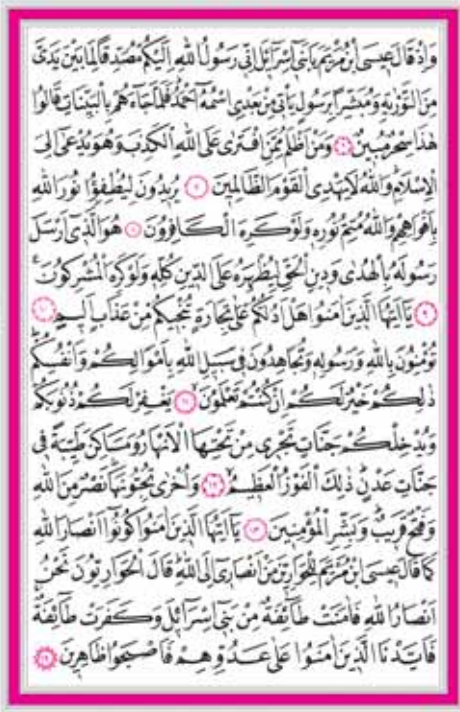 وَاِذْ قَالَ عِيسَى ابْنُ مَرْيَمَ يَابَنِى اِسْرَٓائِلَ اِنِّى رَسُولُ اللهِ اِلَيْكُمْ مُصَدِّقًا لِمَا بَيْنَ يَدَىَّ
مِنَ التَّوْرٰيةِ وَمُبَشِّرًا بِرَسُولٍ يَأْتِى مِنْ بَعْدِى اسْمُهُٓ اَحْمَدُ فَلَمَّا جَٓاءَهُمْ بِالْبَيِّنَاتِ قَالُوا
هٰذَا سِحْرٌ مُبِينٌ ٦ وَمَنْ اَظْلَمُ مِمَّنِ افْتَرٰى عَلَى اللهِ الْكَذِبَ وَهُوَ يُدْعٰٓى اِلَى
الْاِسْلَامِ وَاللهُ لَا يَهْدِى الْقَوْمَ الظَّالِمِينَ ٧ يُرِيدُونَ لِيُطْفِؤُا نُورَ اللهِ
بِاَفْوَاهِهِمْ وَاللهُ مُتِمُّ نُورِهِ وَلَوْ كَرِهَ الْكَافِرُونَ ٨ هُوَ الَّذِٓى اَرْسَلَ
رَسُولَهُ بِالْهُدٰى وَدِينِ الْحَقِّ لِيُظْهِرَهُ عَلَى الدِّينِ كُلِّهِ وَلَوْ كَرِهَ الْمُشْرِكُونَ
٩ يَٓا اَيُّهَا الَّذِينَ اٰمَنُوا هَلْ اَدُلُّكُمْ عَلٰى تِجَارَةٍ تُنْجِيكُمْ مِنْ عَذَابٍ اَلِيمٍ ١٠
تُؤْمِنُونَ بِاللهِ وَرَسُولِهِ وَتُجَاهِدُونَ فِى سَبِيلِ اللهِ بِاَمْوَالِكُمْ وَاَنْفُسِكُمْ
ذٰلِكُمْ خَيْرٌ لَكُمْ اِنْ كُنْتُمْ تَعْلَمُونَ ١١ يَغْفِرْ لَكُمْ ذُنُوبَكُمْ
وَيُدْخِلْكُمْ جَنَّاتٍ تَجْرِى مِنْ تَحْتِهَا الْاَنْهَارُ وَمَسَاكِنَ طَيِّبَةً فِى
جَنَّاتِ عَدْنٍ ذٰلِكَ الْفَوْزُ الْعَظِيمُ ١٢ وَاُخْرٰى تُحِبُّونَهَا نَصْرٌ مِنَ اللهِ
وَفَتْحٌ قَرِيبٌ وَبَشِّرِ الْمُؤْمِنِينَ ١٣ يَٓا اَيُّهَا الَّذِينَ اٰمَنُوا كُونُٓوا اَنْصَارَ اللهِ
كَمَا قَالَ عِيسَى ابْنُ مَرْيَمَ لِلْحَوَارِيِّنَ مَنْ اَنْصَارِٓى اِلَى اللهِ قَالَ الْحَوَارِيُّونَ نَحْنُ
اَنْصَارُ اللهِ فَاٰمَنَتْ طَٓائِفَةٌ مِنْ بَنِٓى اِسْرَٓائِلَ وَكَفَرَتْ طَٓائِفَةٌ
فَاَيَّدْنَا الَّذِينَ اٰمَنُوا عَلٰى عَدُوِّهِمْ فَاَصْبَحُوا ظَاهِرِينَ ١٤